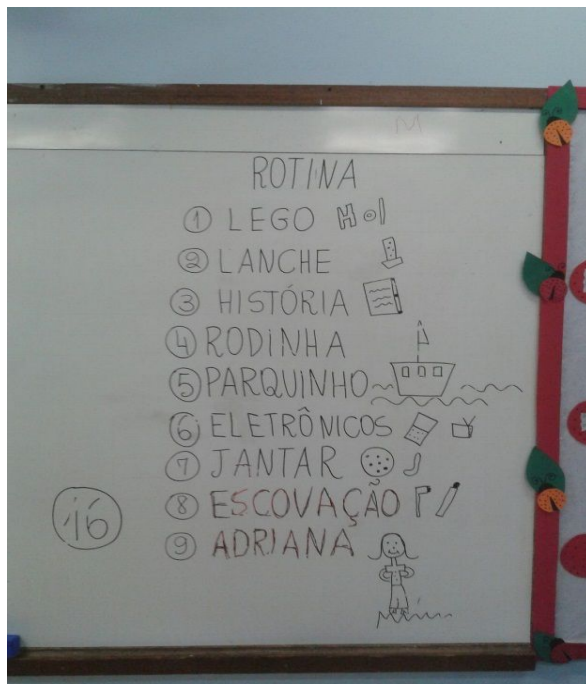 M
ROTINA
1 LEGO
2 LANCHE
3 HISTÓRIA
4 RODINHA
5 PARQUINHO
6 ELETRÔNICOS
7 JANTAR
8 ESCOVAÇÃO
9 ADRIANA
16